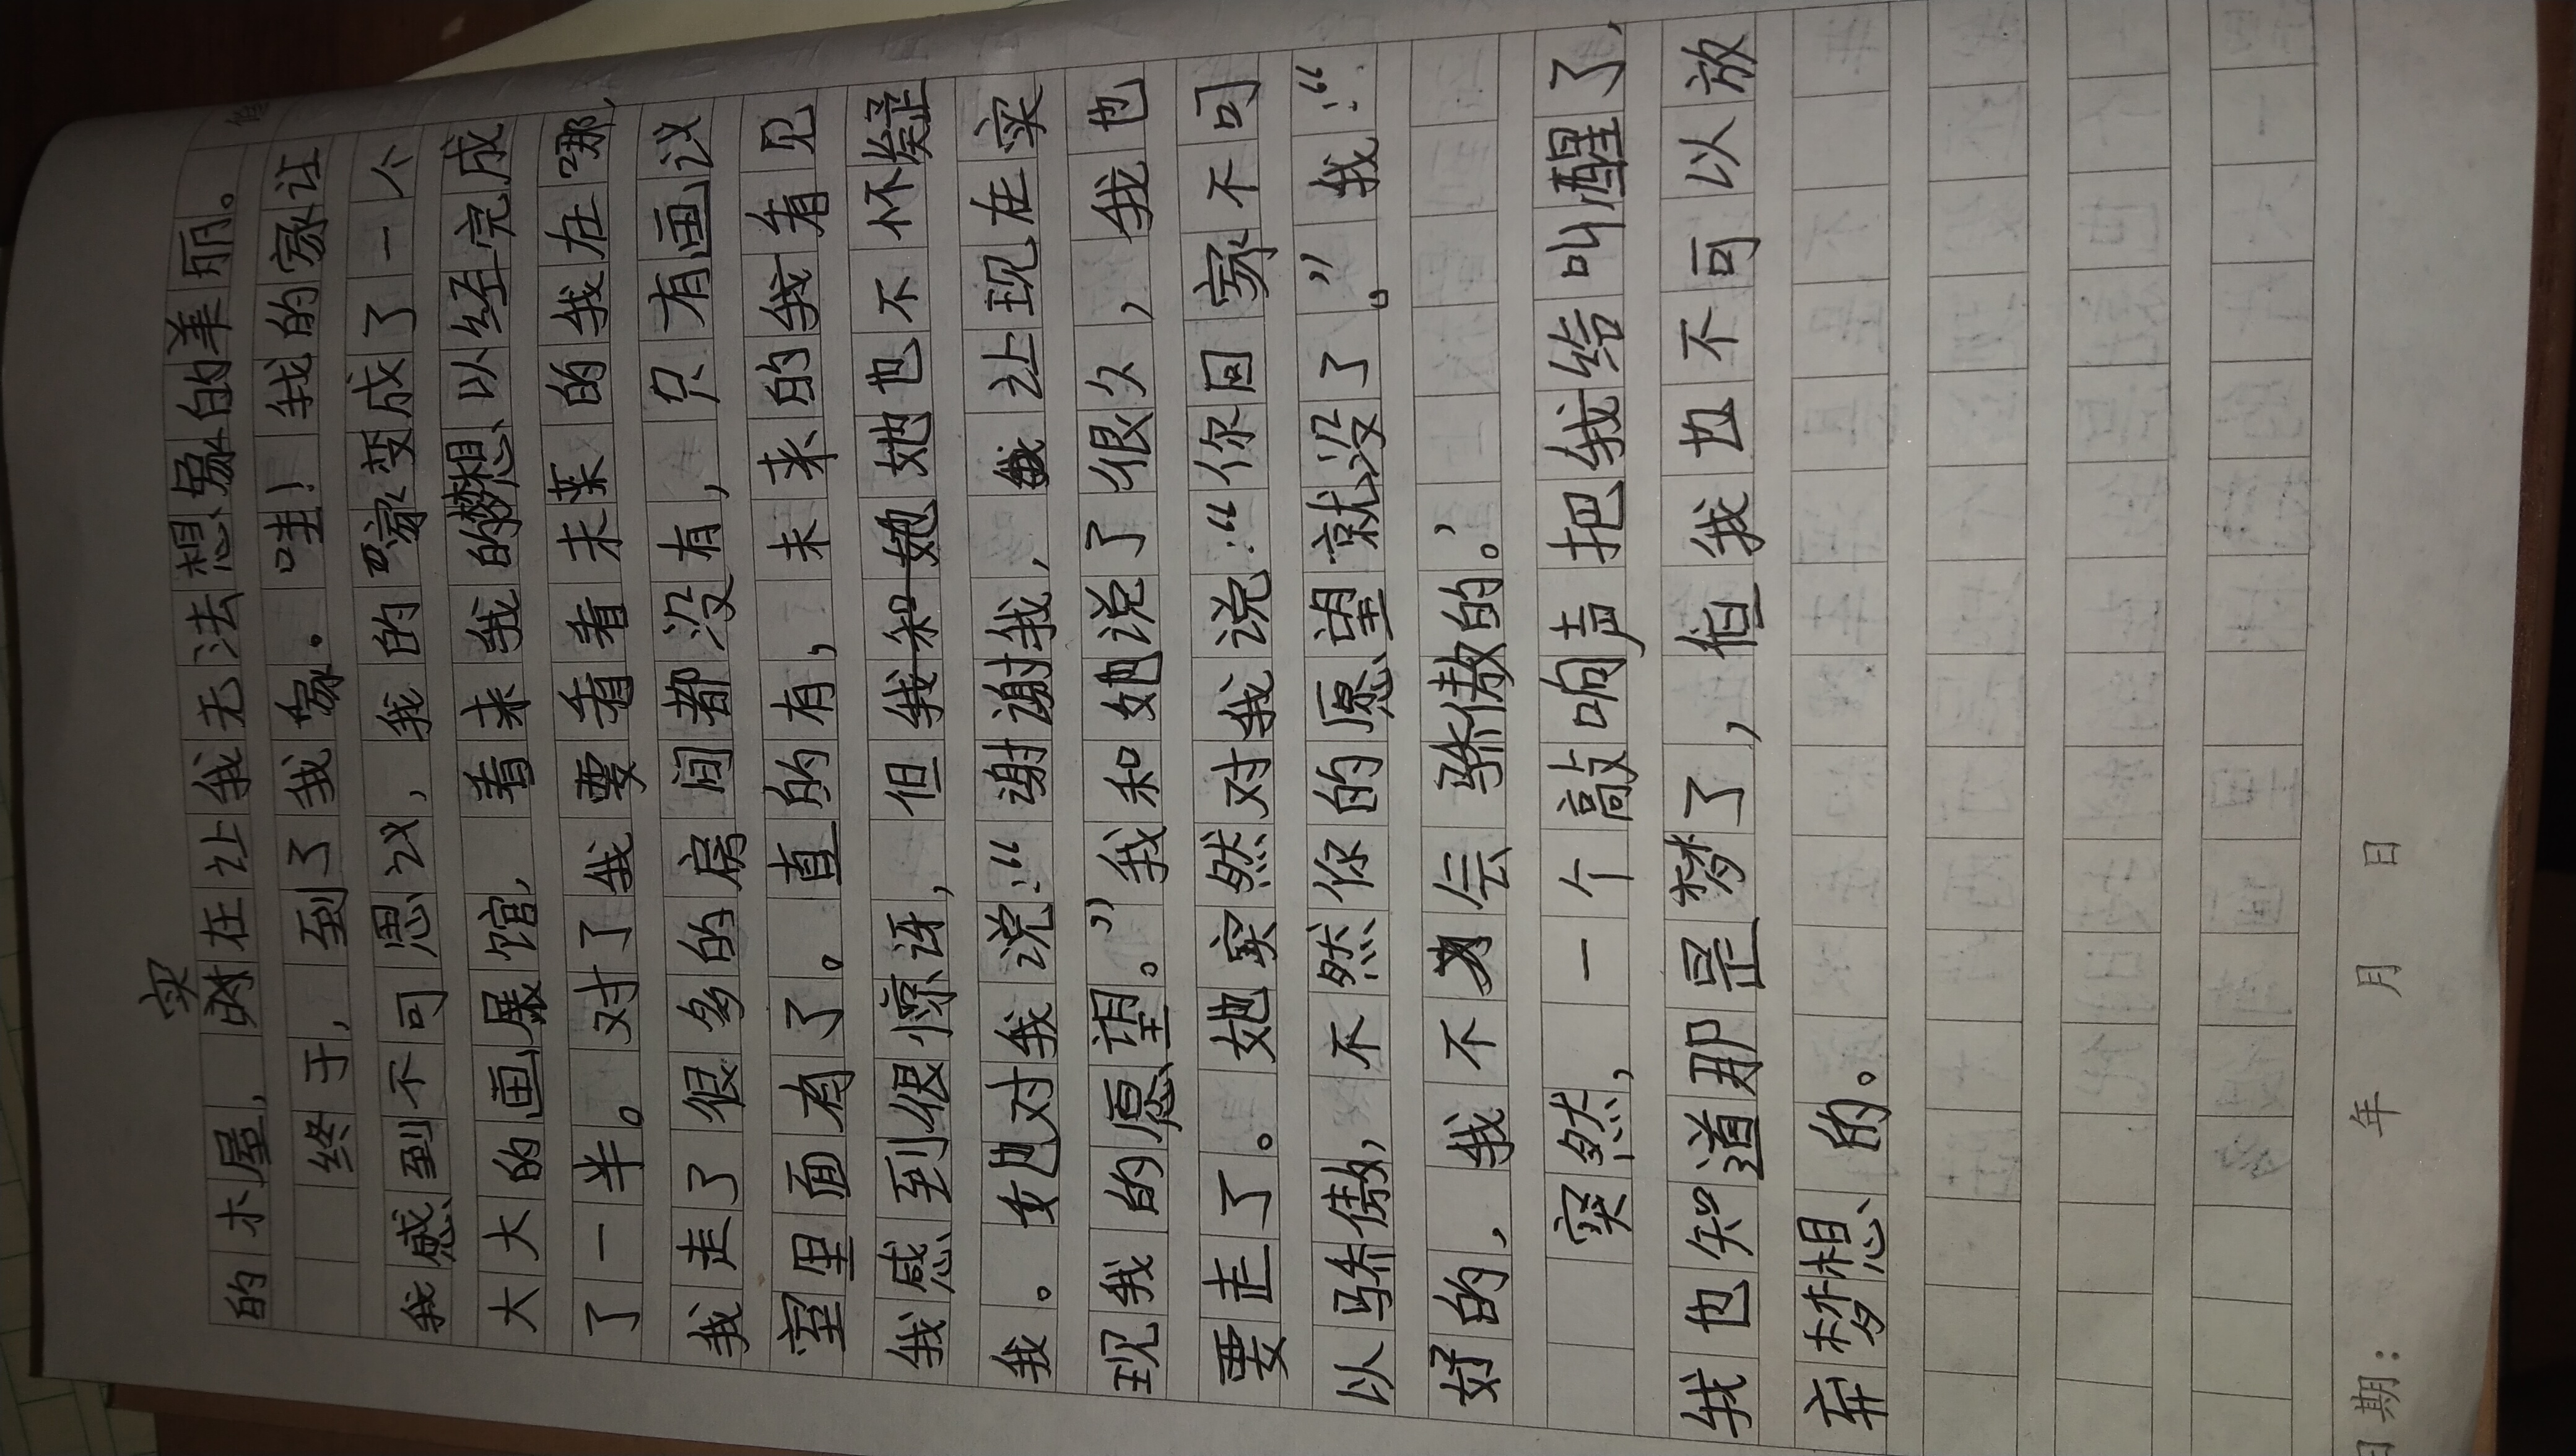 的木屋，实在让我无法想象的美丽。
终于，到了我家。哇！我的家让
我感到不可思议，我的家变成了一个
大大的画展馆，看来我的梦想以经完成
了一半。对了我要看看未来的我在哪，
我走了很多的房间都没有，只有画议
室里面有了。直的有，未来的我看见
我感到很惊讶，但我和她她也不怀疑
我。她对我说：“谢谢我，我让现在实
现我的愿望。”我和她说了很久，我也
要走了。她突然对我说：“你回家不可
以骄傲，不然你的愿望就没了。”我：“
好的，我不会骄傲的。’
突然，一个敲响声把我给叫醒了，
我也知道那是梦了，但我也不可以放
弃梦想的。
日期： 年 月 日